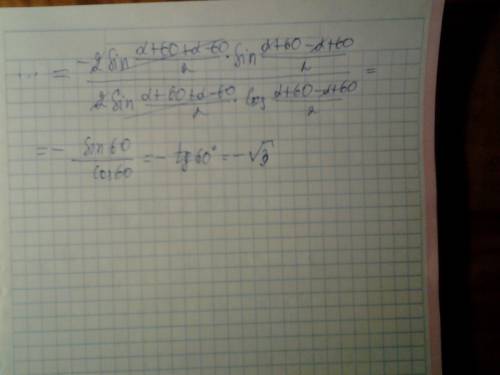 ... = -2 sin (α+60+α-60)/2 · sin (α+60-α+60)/2 / 2 sin (α+60+α-60)/2 · cos (α+60-α+60)/2 =
= - sin 60 / cos 60 = - tg 60° = -√3